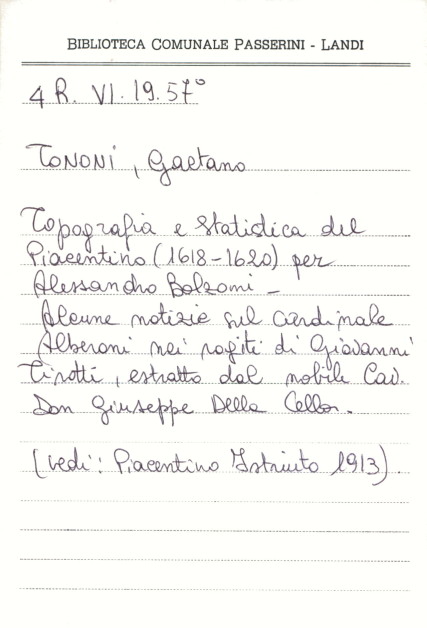 BIBLIOTECA COMUNALE PASSERINI - LANDI
4 R. VI. 19. 57°
TONONI, Gaetano
Topografia e Statistica del
Piacentino (1618-1620) per
Alessandro Bolzoni -
Alcune notizie sul Cardinale
Alberoni nei rogiti di Giovanni
Tirotti, estratto dal nobile Cav.
Don Giuseppe Della Cella.
(vedi: Piacentino Istruito 1913).